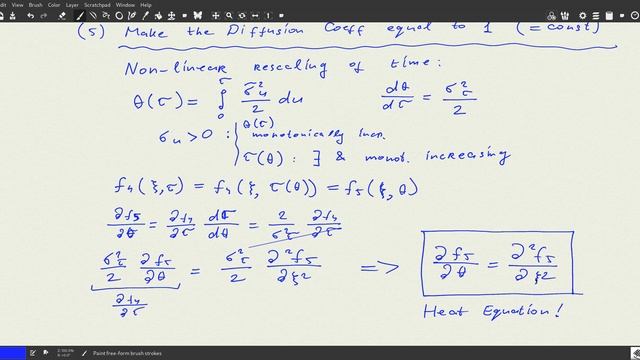 File Edit View Brush Color Layer Scratchpad Window Help
(5) Make the Diffusion Coeff equal to 1 (= const)
Non-linear rescaling of time:
θ(τ) = ∫₀^τ σ²_u/2 du    dθ/dτ = σ²_τ/2
σ_u > 0 : θ(τ) monotonically incr.
τ(θ) : ∃ & monot. increasing
f₄(ξ,τ) = f₄(ξ, τ(θ)) = f₅(ξ, θ)
∂f₅/∂θ = ∂f₄/∂τ dτ/dθ = 2/σ²_τ ∂f₄/∂τ
σ²_τ/2 ∂f₅/∂θ = σ²_τ/2 ∂²f₅/∂ξ² => ∂f₅/∂θ = ∂²f₅/∂ξ²
∂f₄/∂τ
Heat Equation!
Paint free-form brush strokes